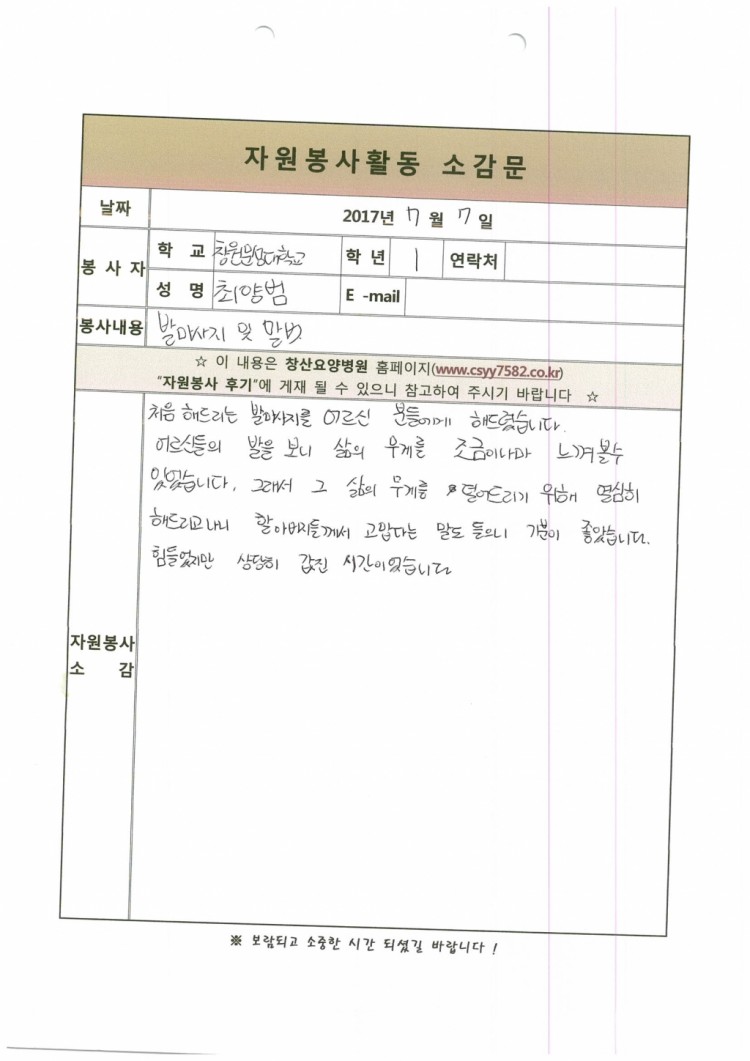 자원봉사활동 소감문
날짜 2017년 7월 7일
봉사자 학교 창원문성대학교 학년 1 연락처
성명 최양범 E-mail
봉사내용 발마사지 및 말벗
☆ 이 내용은 창산요양병원 홈페이지(www.csyy7582.co.kr)
"자원봉사 후기"에 게재 될 수 있으니 참고하여 주시기 바랍니다 ☆
처음 해드리는 발마사지를 어르신 분들에게 해드렸습니다.
어르신들의 발을 보니 삶의 무게를 조금이나마 느껴볼수
있었습니다. 그래서 그 삶의 무게를 덜어드리기 위해 열심히
해드리고나니 할아버지들께서 고맙다는 말도 들으니 기분이 좋았습니다.
힘들었지만 상당히 값진 시간이었습니다
자원봉사
소감
※ 보람되고 소중한 시간 되셨길 바랍니다 !